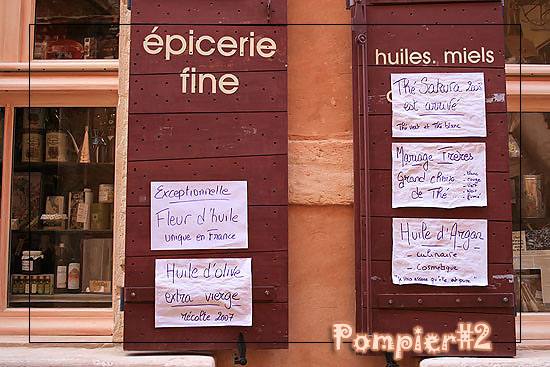 épicerie
fine
huiles. miels
Thé Sakura 2007
est arrivé
Thé vert et Thé blanc
Mariage Frères
Grand choix
de Thé
Exceptionnelle
Fleur d'huile
unique en France
Huile d'olive
extra vierge
récolte 2007
Huile d'Argan
culinaire
cosmétique
Pompier#2